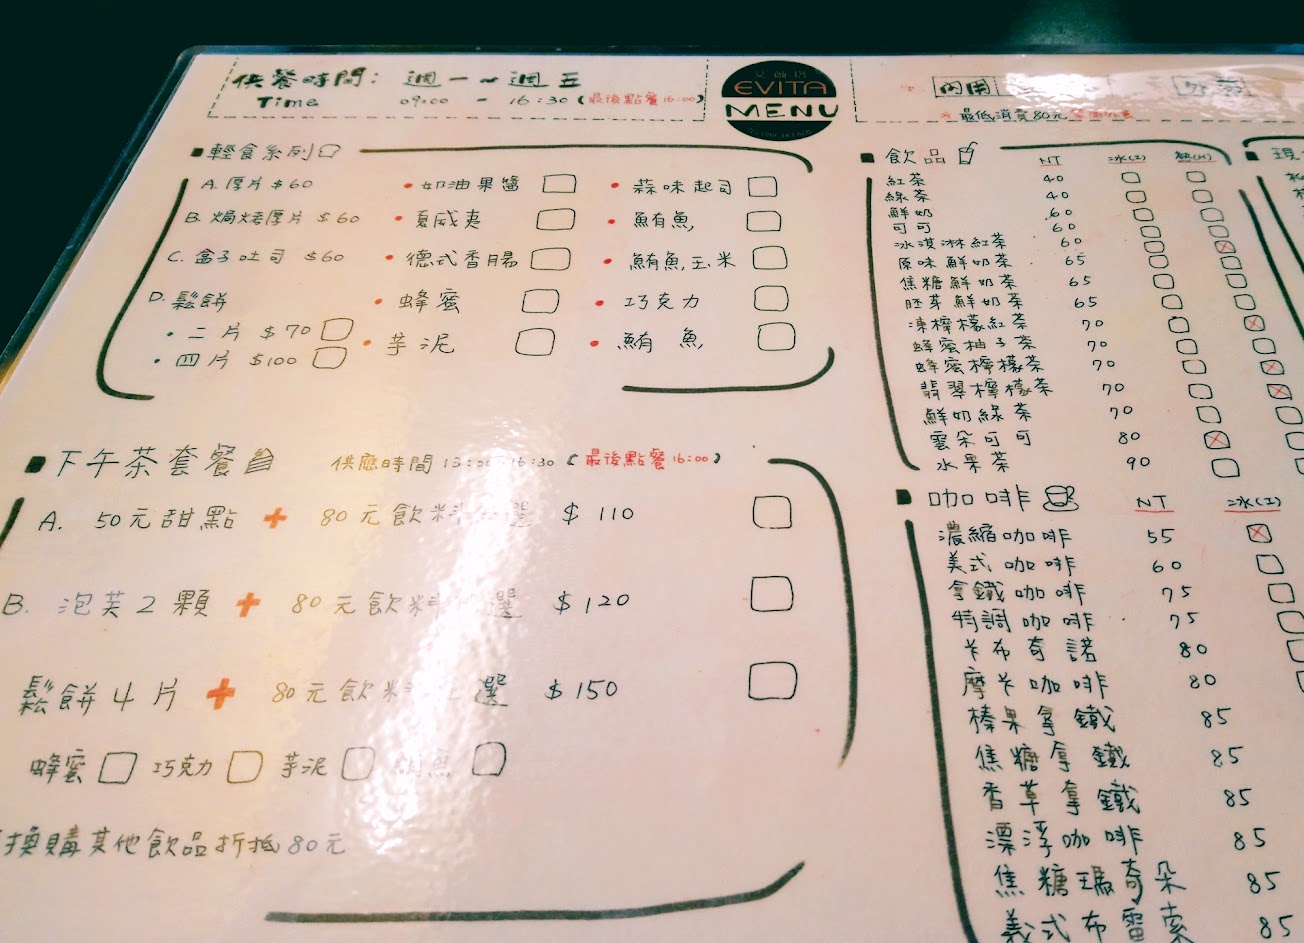 供餐時間: 週一~週五
Time 09:00 - 16:30 (最後點餐16:00)
EVITA
MENU
內用
※最低消費80元
輕食系列
A. 厚片 $60 • 奶油果醬 • 蒜味起司
B. 焗烤厚片 $60 • 夏威夷 • 鮪魚
C. 盒子吐司 $60 • 德式香腸 • 鮪魚玉米
D. 鬆餅 • 蜂蜜 • 巧克力
• 二片 $70 • 芋泥 • 鮪魚
• 四片 $100
下午茶套餐 供應時間 13:00-16:30 (最後點餐16:00)
A. 50元甜點 + 80元飲料 選 $110
B. 泡芙2顆 + 80元飲料 選 $120
鬆餅4片 + 80元飲料 選 $150
蜂蜜 巧克力 芋泥 鮪魚
換購其他飲品折抵80元
飲品 NT 冰(I) 熱(H)
紅茶 40
綠茶 40
鮮奶 60
可可 60
冰淇淋紅茶 60
原味鮮奶茶 65
焦糖鮮奶茶 65
胚芽鮮奶茶 65
凍檸檬紅茶 70
蜂蜜柚子茶 70
蜂蜜檸檬茶 70
翡翠檸檬茶 70
鮮奶綠茶 70
雲朵可可 80
水果茶 90
咖啡 NT 冰(I)
濃縮咖啡 55
美式咖啡 60
拿鐵咖啡 75
特調咖啡 75
卡布奇諾 80
摩卡咖啡 80
榛果拿鐵 85
焦糖拿鐵 85
香草拿鐵 85
漂浮咖啡 85
焦糖瑪奇朵 85
義式布雷索 85
現